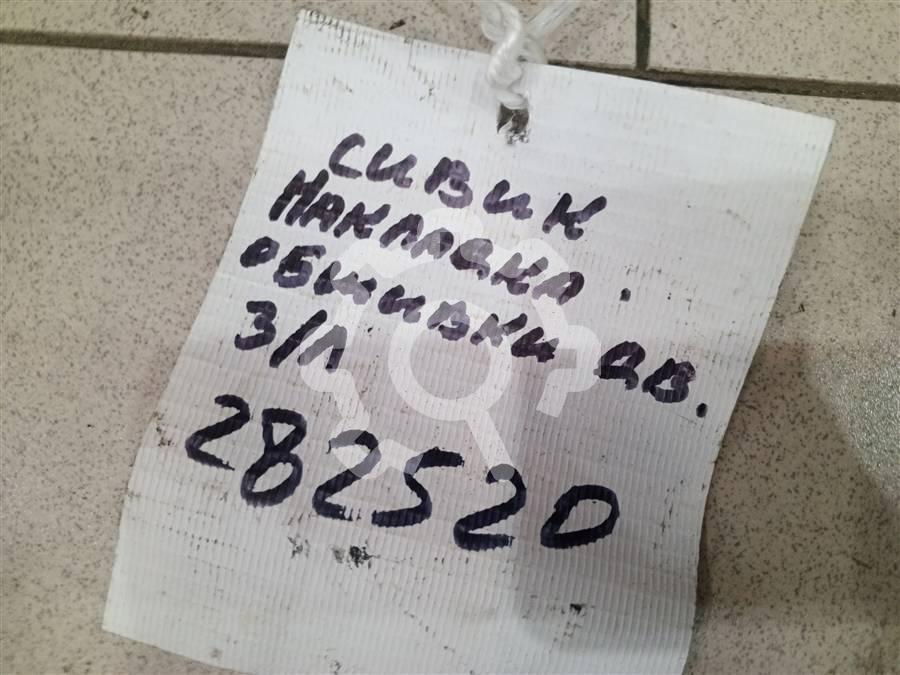 СИВИК
НАКЛАДКА.
ОБШИВКИ ДВ.
З/Л
282520